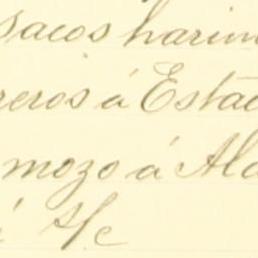 sacos harin
reros á Estac
mozo á Ala
á S/c